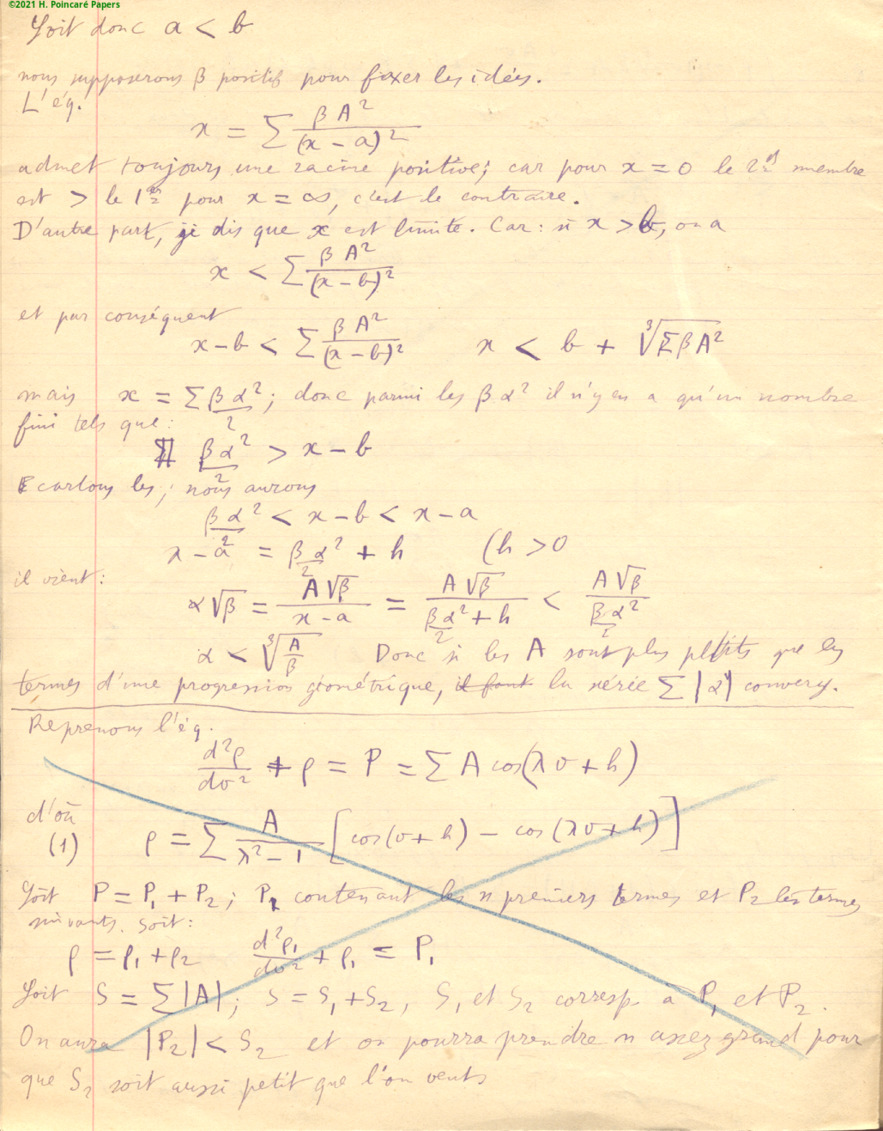 ©2021 H. Poincaré Papers
Soit donc a < b
nous supposerons β positif pour fixer les idées.
L'éq.
x = ∑ βA²/(x – a)²
admet toujours une racine positive; car pour x = 0 le 2ᵈ membre
est > le 1ᵉʳ pour x = ∞, c'est le contraire.
D'autre part, je dis que x est limité. Car : si x > b, on a
x < ∑ βA²/(x – b)²
et par conséquent
x – b < ∑ βA²/(x – b)² x < b + ∛(∑βA²)
mais x = ∑ βα²/2 ; donc parmi les βα² il n'y en a qu'un nombre
fini tels que :
βα²/2 > x – b
Ecartons les ; nous aurons
βα²/2 < x – b < x – a
x – a = βα²/2 + h (h > 0
il vient :
α√β = A√β/(x – a) = A√β/(βα²/2 + h) < A√β/(βα²/2)
α < ∛(A/β) Donc si les A sont plus petits que les
termes d'une progression géométrique, il faut la série ∑|α| converg.
Reprenons l'éq.
d²ρ/dv² + ρ = P = ∑ A cos(λv + h)
d'où
(1) ρ = ∑ A/(λ² – 1) [cos(v + h) – cos(λv + h)]
Soit P = P₁ + P₂ ; P₁ contenant les n premiers termes et P₂ les termes
suivants. Soit :
ρ = ρ₁ + ρ₂ d²ρ₁/dv² + ρ₁ = P₁
Soit S = ∑|A| ; S = S₁ + S₂, S₁ et S₂ corresp. à P₁ et P₂.
On aura |P₂| < S₂ et on pourra prendre n assez grand pour
que S₂ soit aussi petit que l'on veut